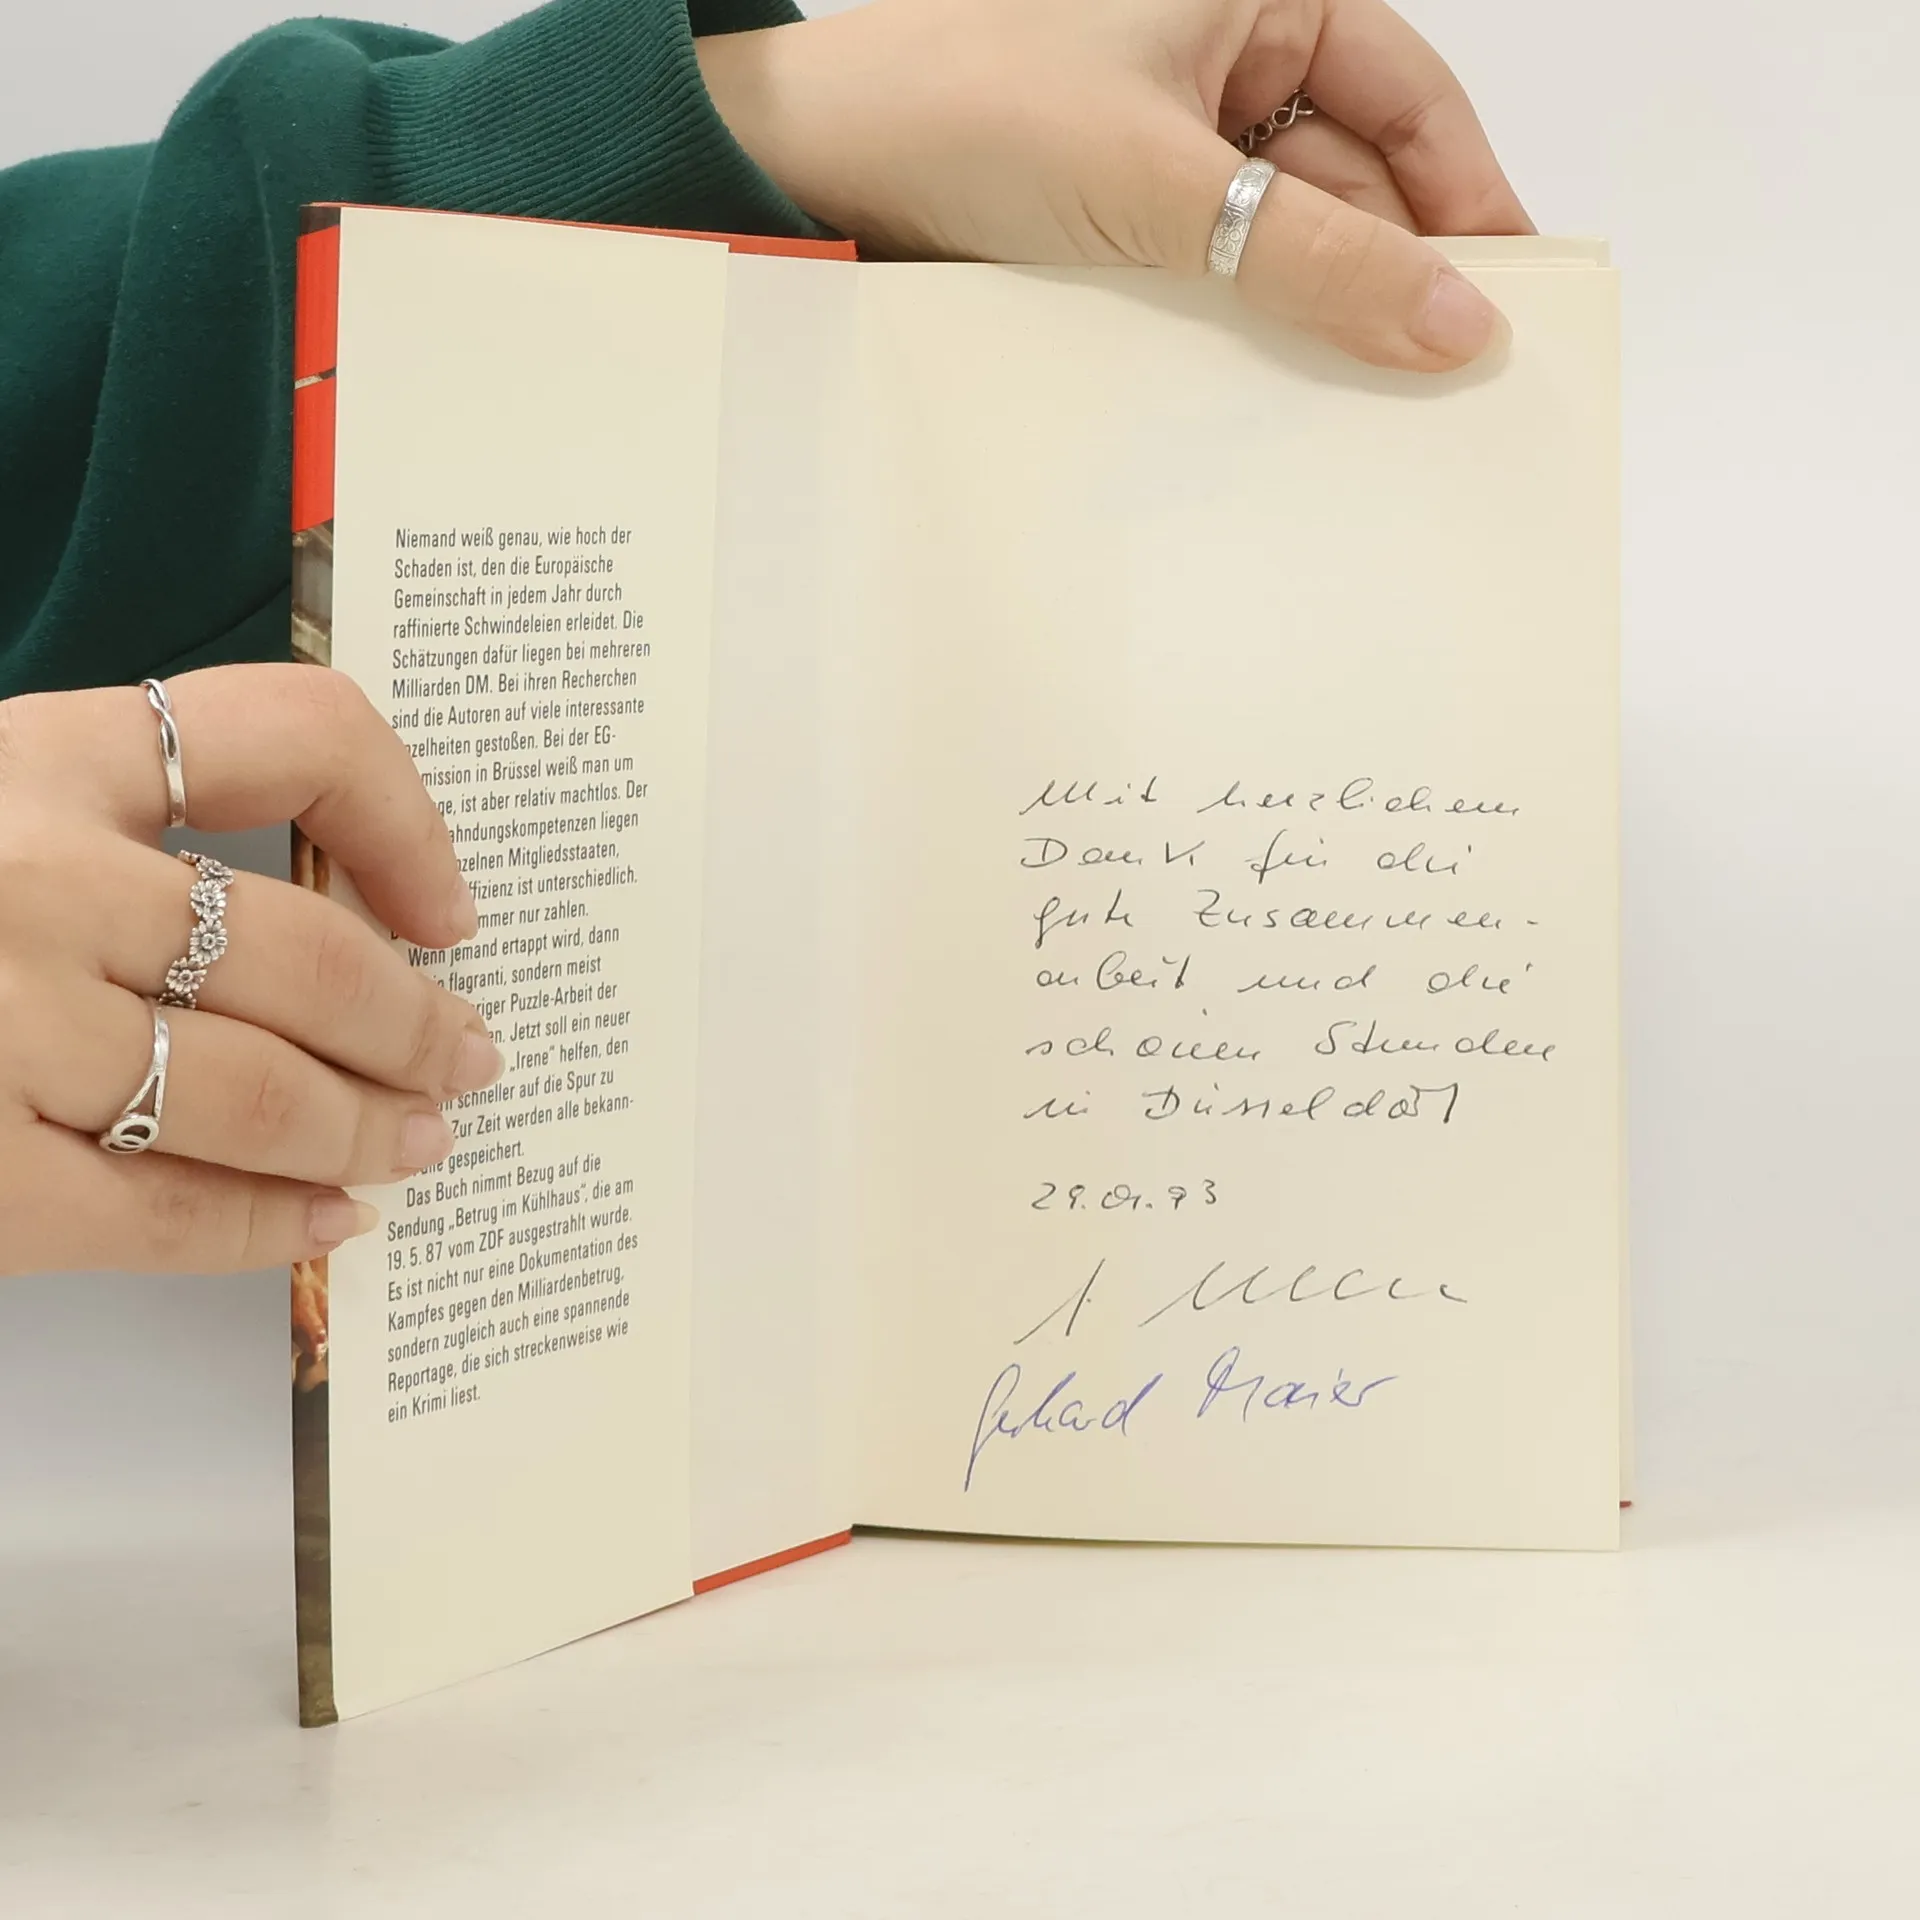 Niemand weiß genau, wie hoch der
Schaden ist, den die Europäische
Gemeinschaft in jedem Jahr durch
raffinierte Schwindeleien erleidet. Die
Schätzungen dafür liegen bei mehreren
Milliarden DM. Bei ihren Recherchen
sind die Autoren auf viele interessante
zelheiten gestoßen. Bei der EG-
mission in Brüssel weiß man um
ge, ist aber relativ machtlos. Der
ahndungskompetenzen liegen
nzelnen Mitgliedsstaaten,
ffizienz ist unterschiedlich.
mmer nur zahlen.
Wenn jemand ertappt wird, dann
flagranti, sondern meist
riger Puzzle-Arbeit der
en. Jetzt soll ein neuer
„Irene" helfen, den
schneller auf die Spur zu
Zur Zeit werden alle bekann-
gespeichert.
Das Buch nimmt Bezug auf die
Sendung „Betrug im Kühlhaus", die am
19. 5. 87 vom ZDF ausgestrahlt wurde.
Es ist nicht nur eine Dokumentation des
Kampfes gegen den Milliardenbetrug,
sondern zugleich auch eine spannende
Reportage, die sich streckenweise wie
ein Krimi liest.
Mit herzlichem
Dank für die
gute Zusammen-
arbeit und die
schönen Stunden
in Düsseldorf
29.01.93
Gerhard Maier